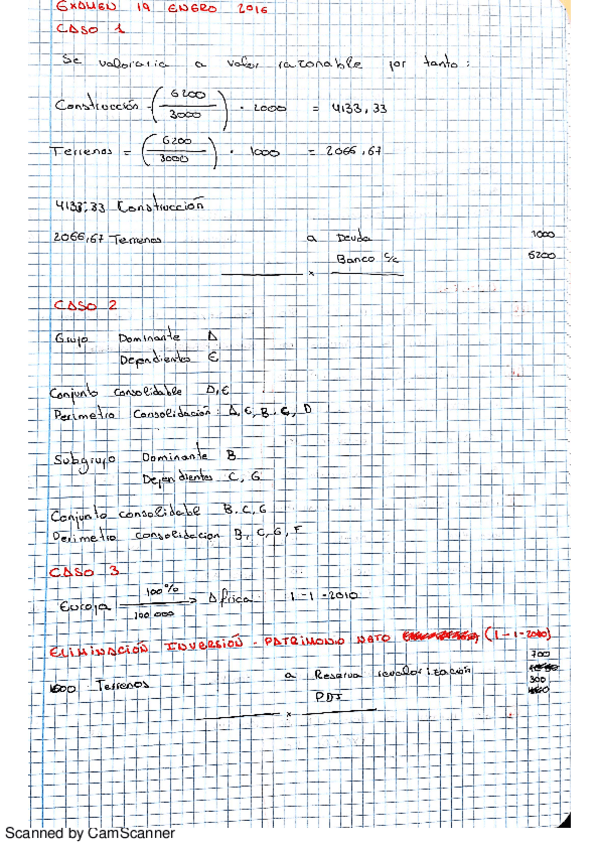 EXAMEN 19 ENERO 2016
CASO 1
Se valoraria a valor razonable por tanto:
Construcción = (6200 / 3000) · 2000 = 4133,33
Terrenos = (6200 / 3000) · 1000 = 2066,67
4133,33 Construcción
2066,67 Terrenos a Deuda 1000
Banco c/c 5200
x
CASO 2
Grupo Dominante A
Dependientes E
Conjunto consolidable A,E
Perimetro Consolidación: A, E, B, G, D
Subgrupo Dominante B
Dependientes C, G
Conjunto consolidable B, C, G
Perimetro consolidacion B, C, G, F
CASO 3
Europa 100% 100 000 → Africa 1-1-2010
ELIMINACIÓN INVERSIÓN - PATRIMONIO NETO (1-1-2010)
1000 Terrenos a Reserva revalorización 700
PDI 300
x
Scanned by CamScanner